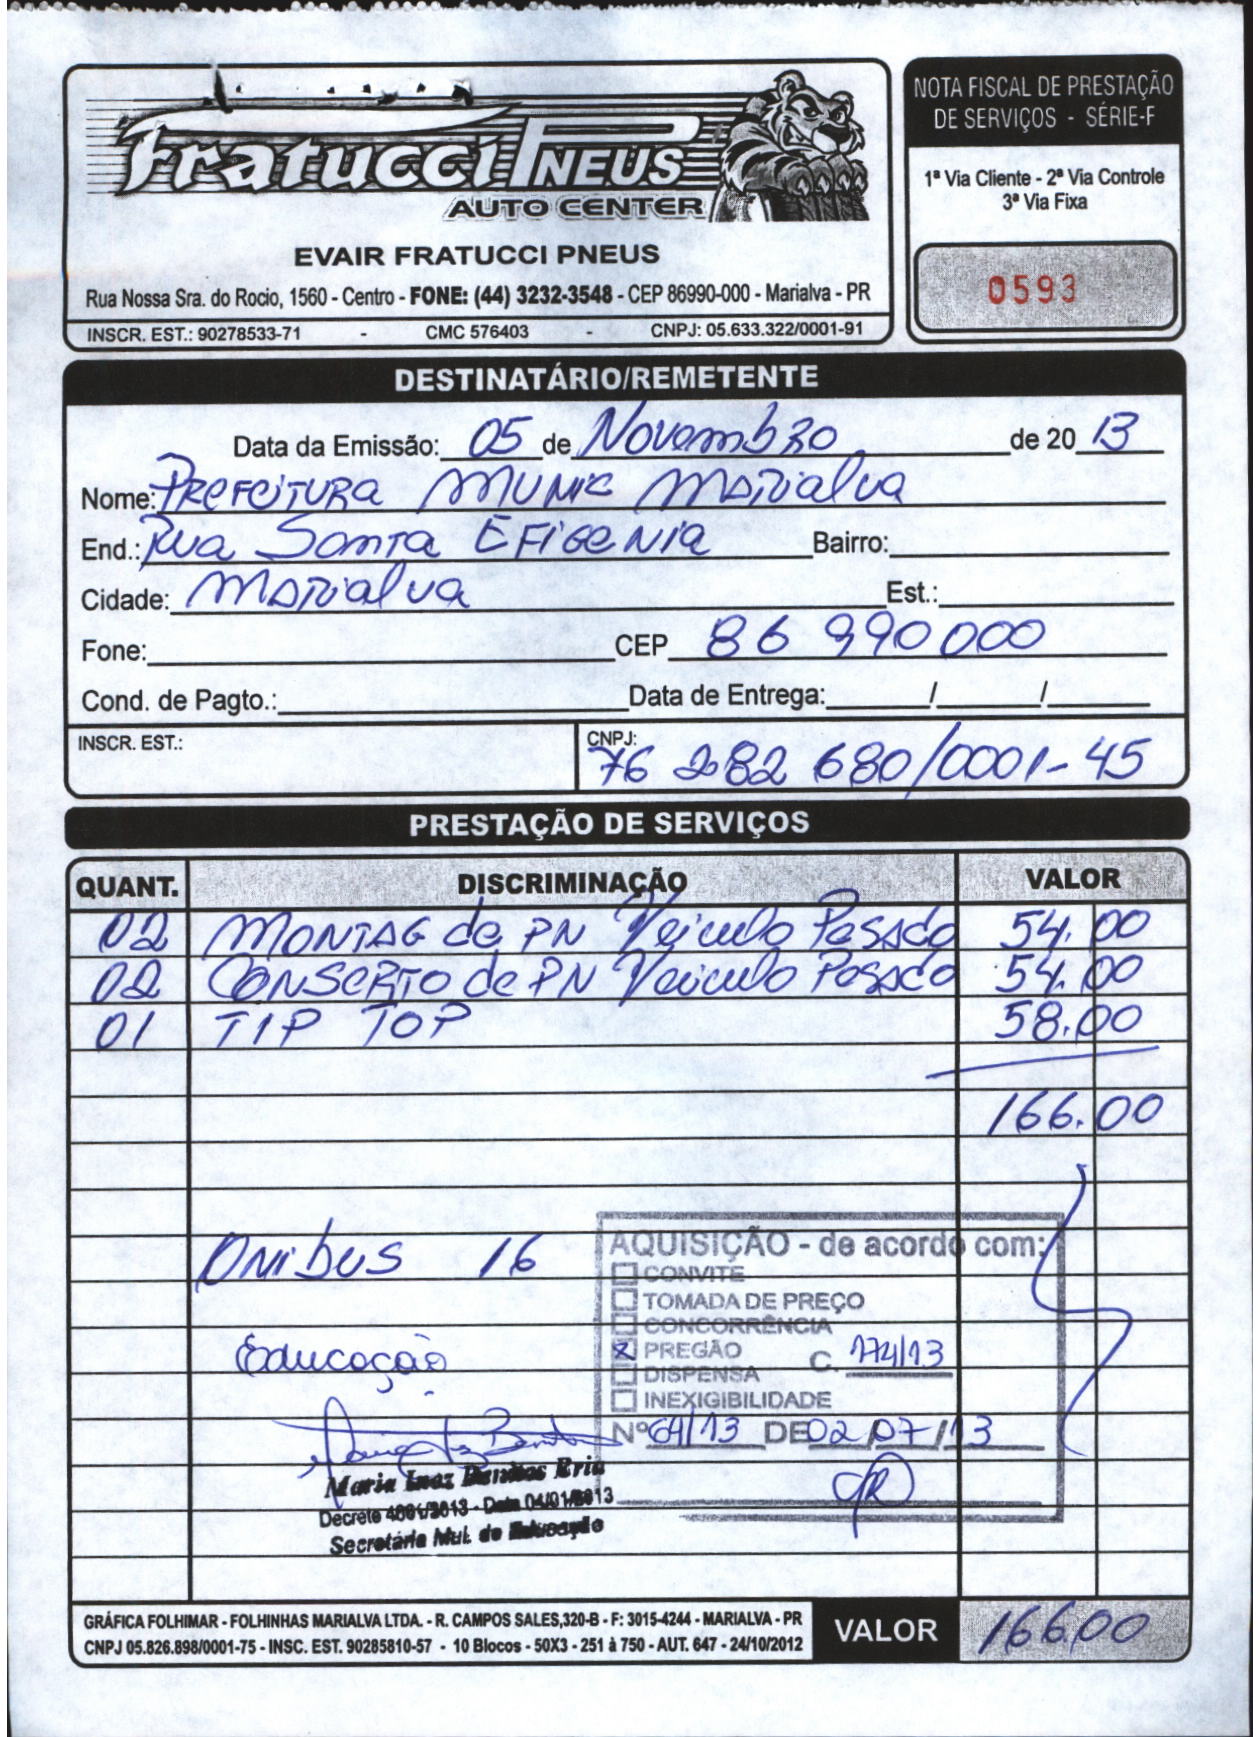 Fratucci PNEUS
AUTO CENTER
EVAIR FRATUCCI PNEUS
Rua Nossa Sra. do Rocio, 1560 - Centro - FONE: (44) 3232-3548 - CEP 86990-000 - Marialva - PR
INSCR. EST.: 90278533-71 - CMC 576403 - CNPJ: 05.633.322/0001-91
NOTA FISCAL DE PRESTAÇÃO
DE SERVIÇOS - SÉRIE-F
1ª Via Cliente - 2ª Via Controle
3ª Via Fixa
0593
DESTINATÁRIO/REMETENTE
Data da Emissão: 05 de Novembro de 20 13
Nome: PREFEITURA MUNIC Marialva
End.: Rua Santa EFIGENIA Bairro:
Cidade: Marialva Est.:
Fone: CEP 86 990 000
Cond. de Pagto.: Data de Entrega: / /
INSCR. EST.: CNPJ: 76 282 680/0001-45
PRESTAÇÃO DE SERVIÇOS
QUANT. DISCRIMINAÇÃO VALOR
02 MONTAG de PN Veiculo Pesado 54.00
02 CONSERTO de PN Veiculo Pesado 54.00
01 TIP TOP 58.00
166.00
ONibus 16
Educação
AQUISIÇÃO - de acordo com:
CONVITE
TOMADA DE PREÇO
CONCORRÊNCIA
X PREGÃO C. 174/13
DISPENSA
INEXIGIBILIDADE
Nº 64/13 DE 02/07/13
Maria Inez Benites
Decreto Data 04/01/2013
Secretária Mul. de Educação
GRÁFICA FOLHIMAR - FOLHINHAS MARIALVA LTDA. - R. CAMPOS SALES,320-B - F: 3015-4244 - MARIALVA - PR
CNPJ 05.826.898/0001-75 - INSC. EST. 90285810-57 - 10 Blocos - 50X3 - 251 à 750 - AUT. 647 - 24/10/2012
VALOR 166.00